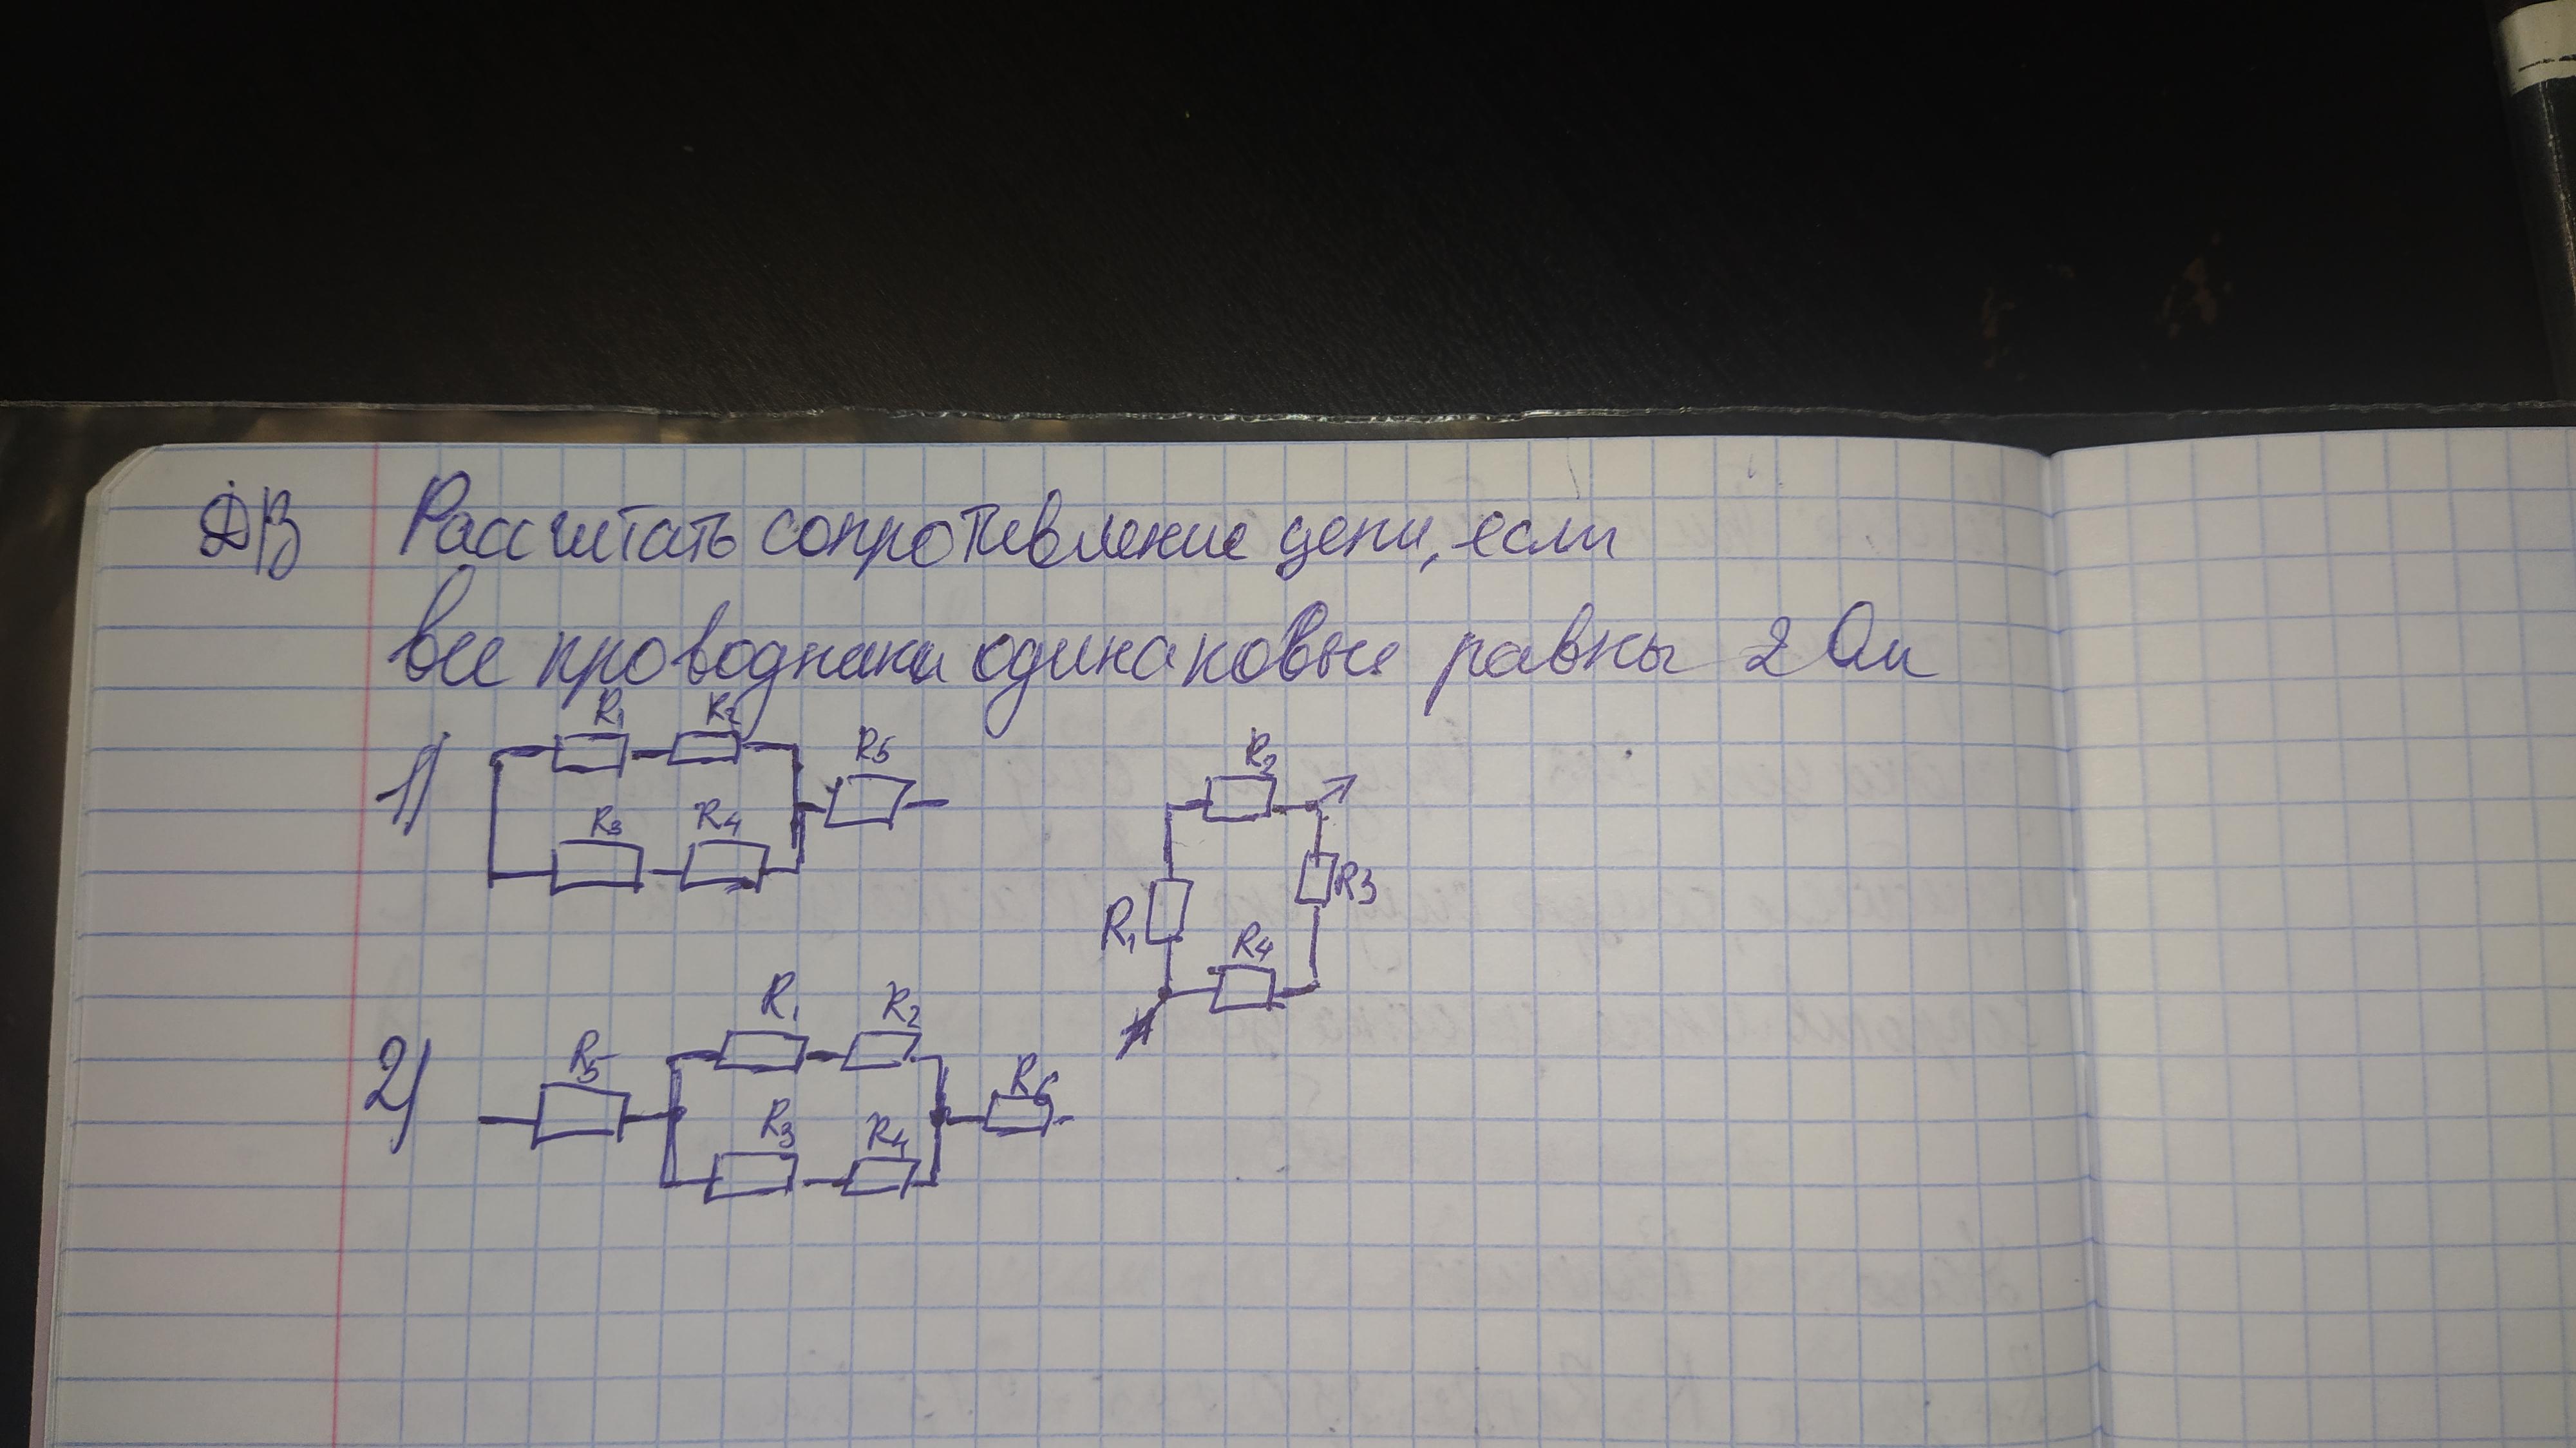 ДЗ Рассчитать сопротивление цепи, если
все проводники одинаковые равны 2 Ом
1) R1 R2 R5
R3 R4
R2
R1 R3
R4
2) R5 R1 R2 R6
R3 R4